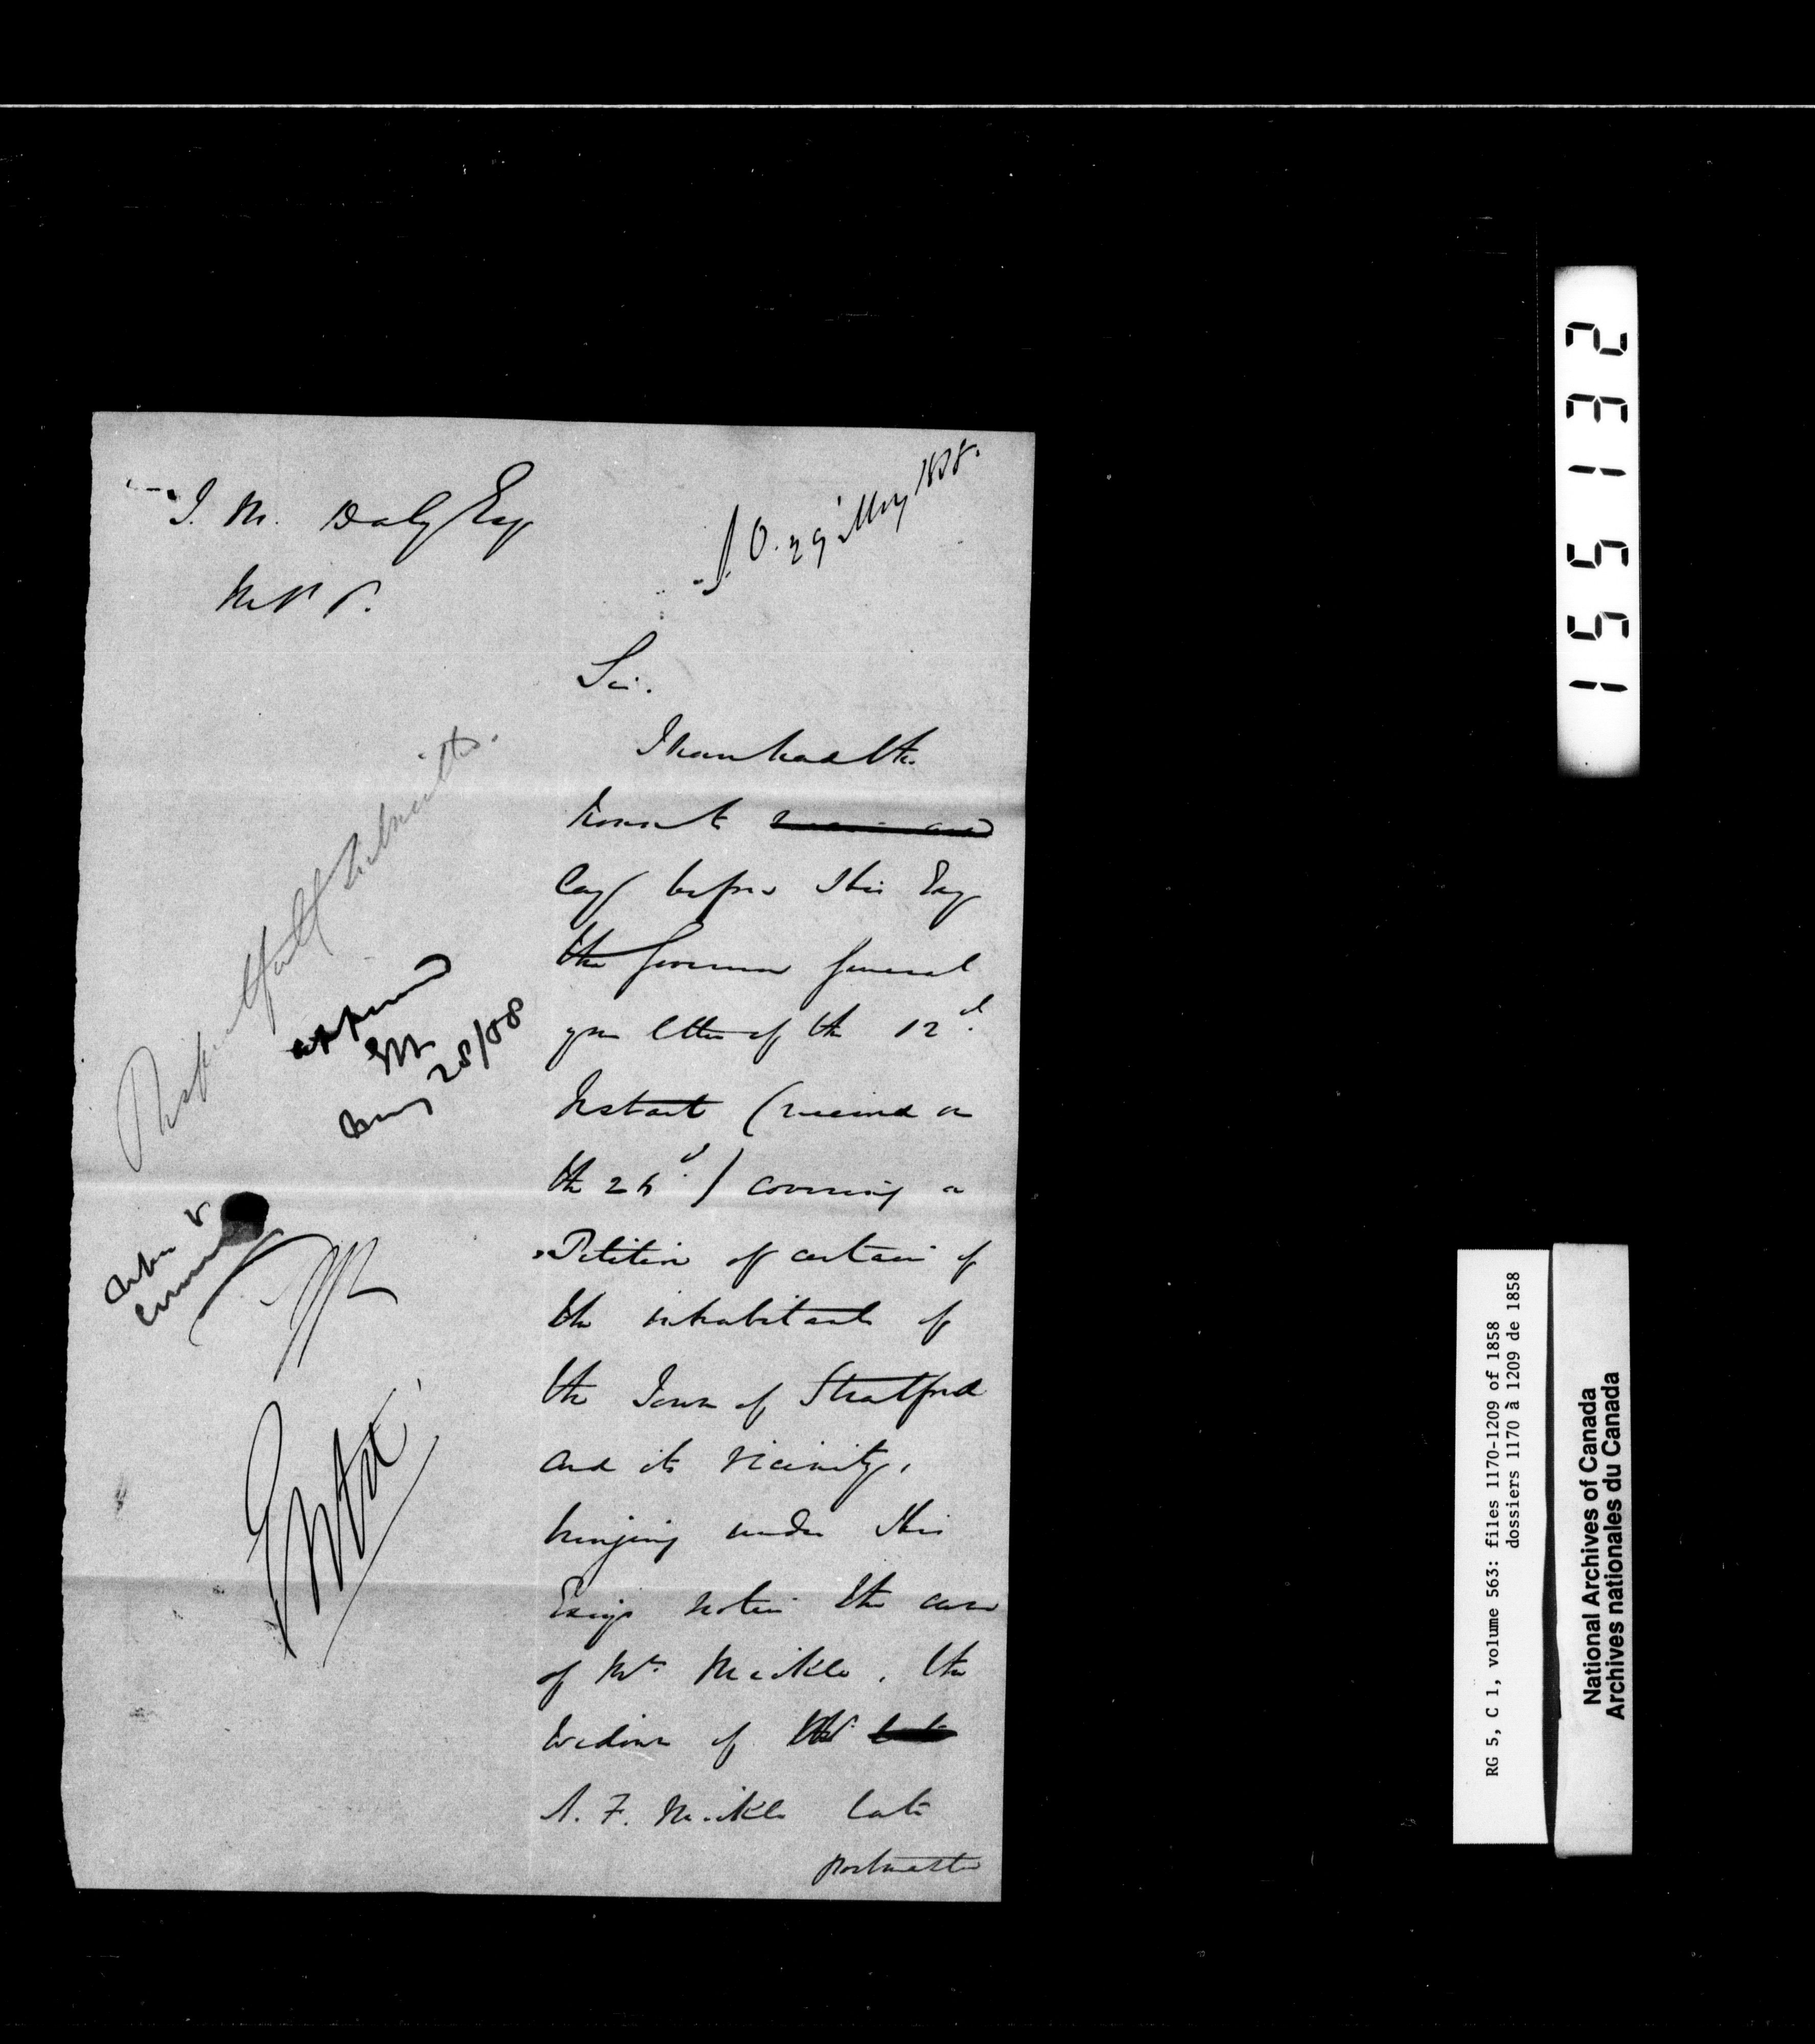 T. M. Daly Esq
M.P.P.
S. O. 29 May 1858.
Sir.
I have had the
honor to
lay before His Exy
the Governor General
your letter of the 12th
Instant (received on
the 26th) covering a
Petition of certain of
the inhabitants of
the Town of Stratford
and its vicinity,
bringing under His
Excys notice the case
of Mrs Meikle, the
widow of
A. F. Meikle late
Postmaster
Respectfully submitted.
approved
May 28/58
Entd
155132
RG 5, C 1, volume 563: files 1170-1209 of 1858
dossiers 1170 à 1209 de 1858
National Archives of Canada
Archives nationales du Canada